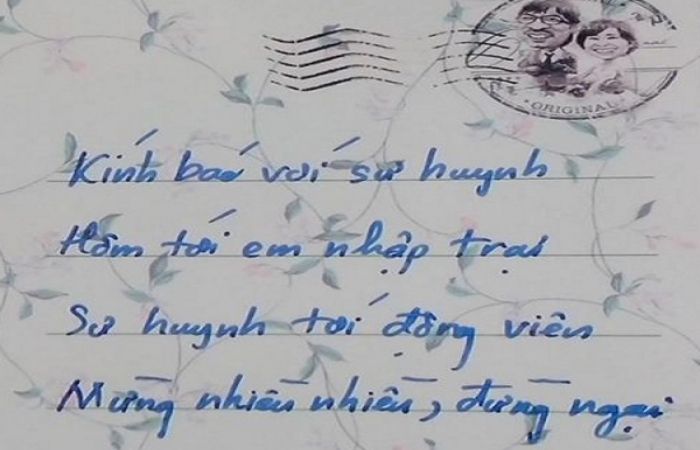 ORIGINAL
Kính báo với sư huynh
Hôm tới em nhập trại
Sư huynh tới động viên
Mừng nhiều nhiều, đừng ngại